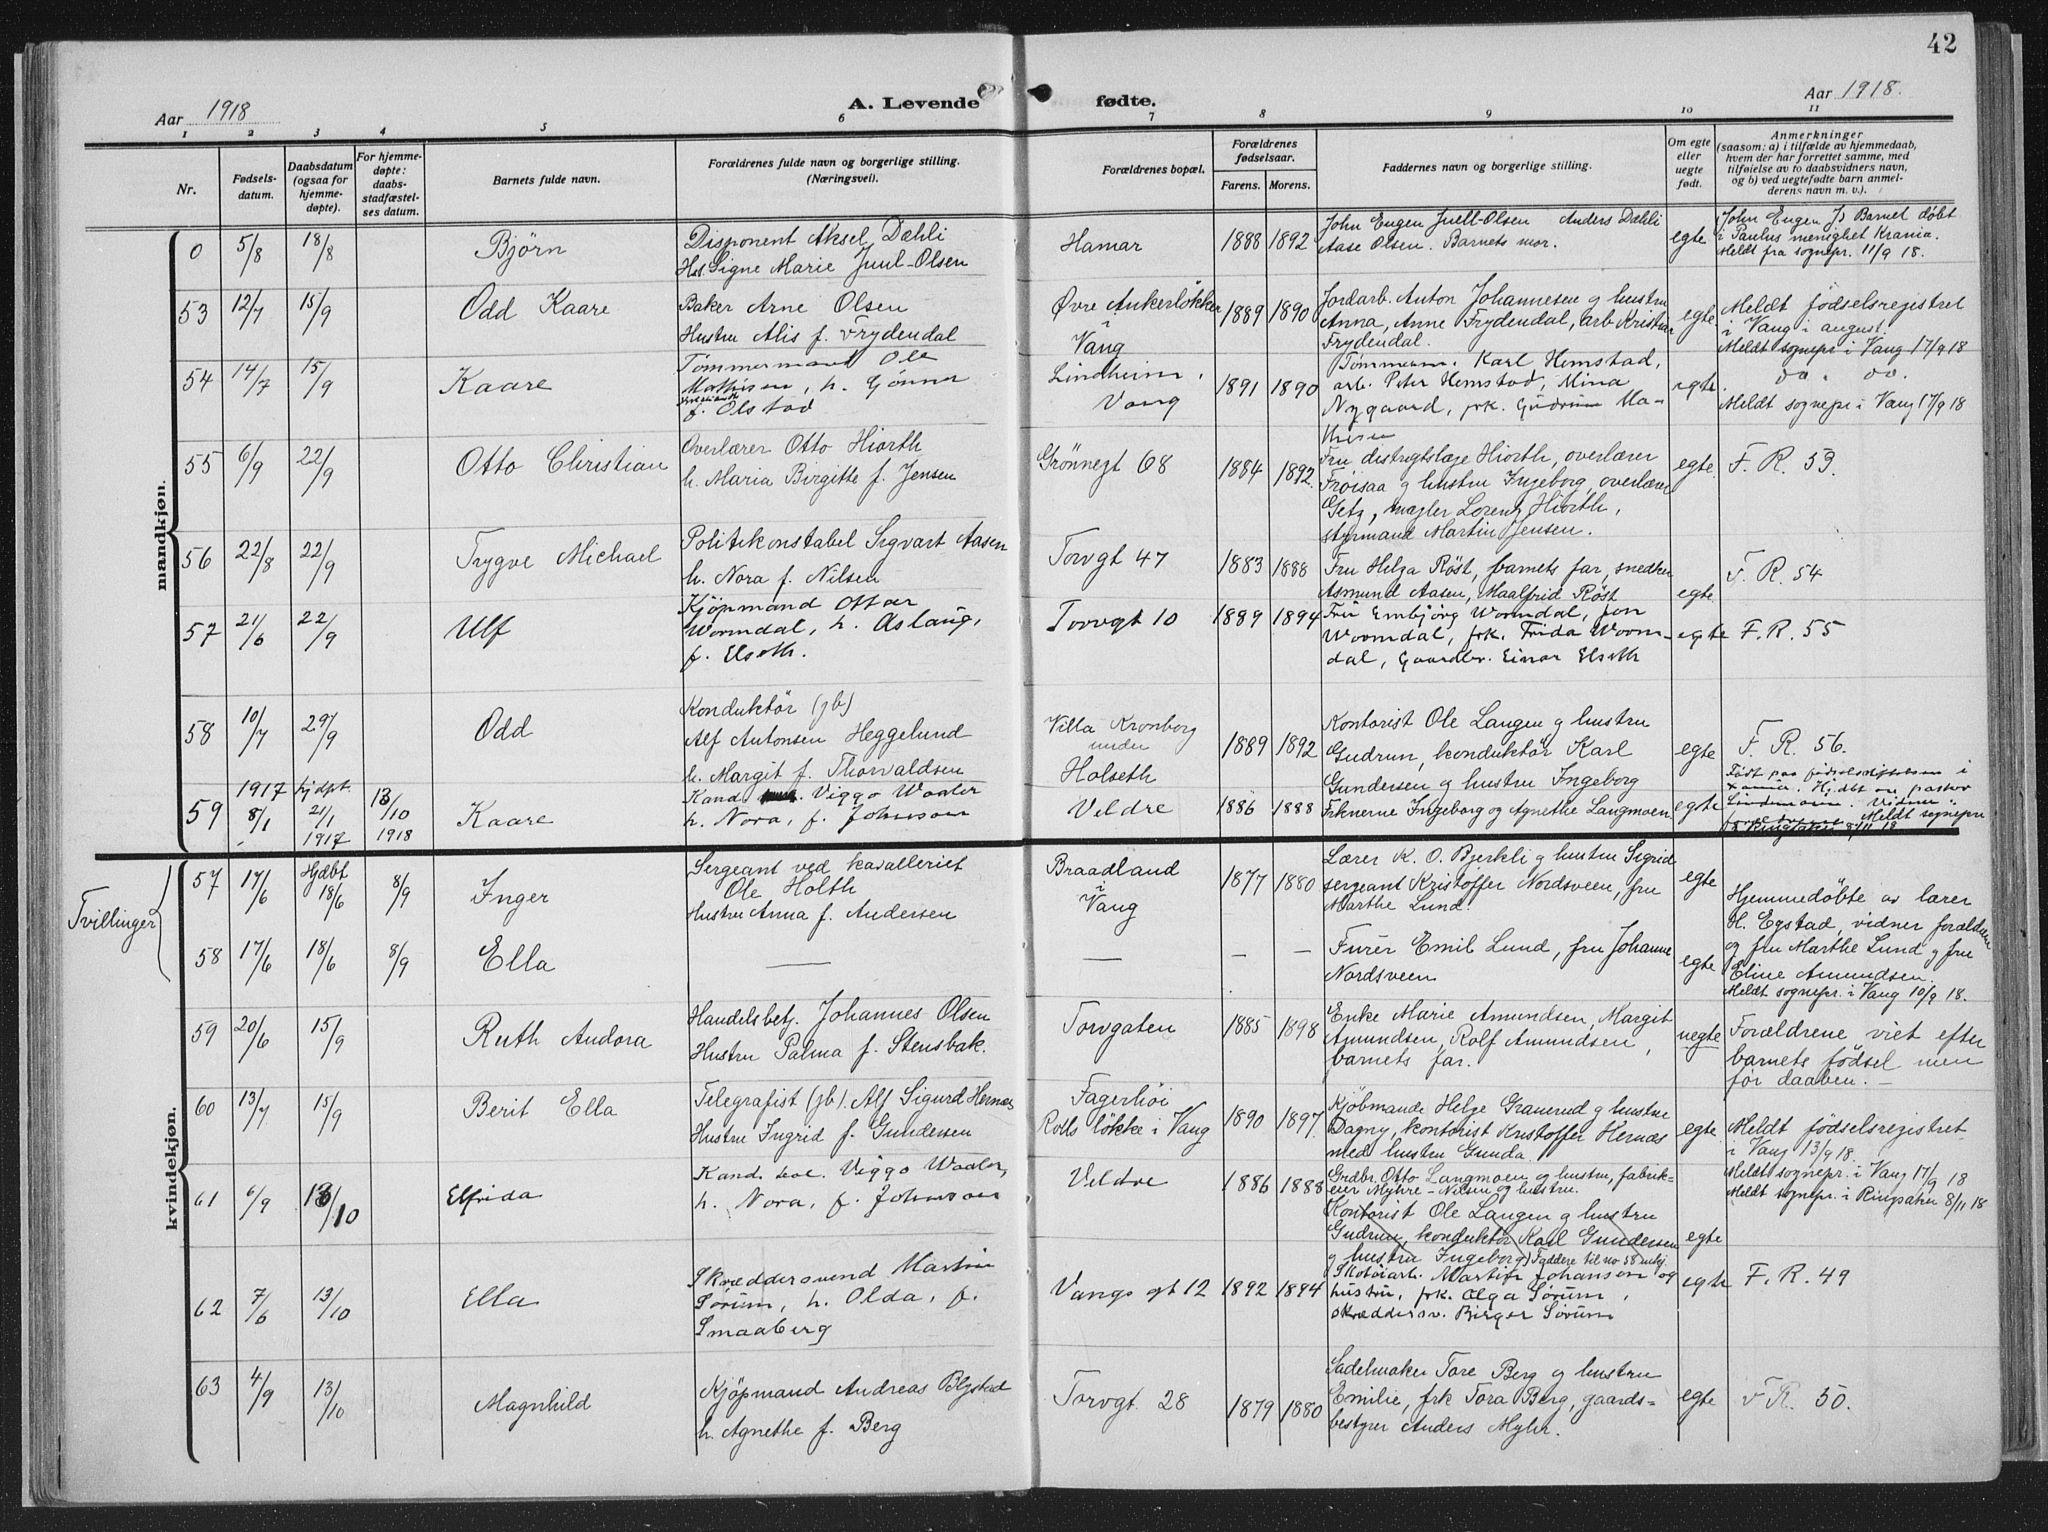 42
Aar 1918
A. Levende fødte.
Aar 1918.
1 2 3 4 5 6 7 8 9 10 11
Nr.
Fødsels-
datum.
Daabsdatum
(ogsaa for
hjemme-
døpte).
For hjemme-
døpte:
daabs-
stadfæstel-
ses datum.
Barnets fulde navn.
Forældrenes fulde navn og borgerlige stilling.
(Næringsvei).
Forældrenes bopæl.
Forældrenes
fødselsaar.
Farens. Morens.
Faddernes navn og borgerlige stilling.
Om egte
eller
uegte
født.
Anmerkninger
(saasom: a) i tilfælde av hjemmedaab,
hvem der har forrettet samme, med
tilføielse av to daabsvidners navn,
og b) ved uegtefødte barn anmel-
derens navn m. v.).
mandkjøn.
0 5/8 18/8 Bjørn
Disponent Aksel Dæhli
Hs. Signe Marie Juul-Olsen
Hamar 1888 1892
John Eugen Juell-Olsen Anders Dæhli
Aase Olsen. Barnets mor.
egte
(John Eugen J) Barnet døbt
i Paulus menighet Krania.
Meldt fra sognepr. 11/9 18.
53 12/7 15/9 Odd Kaare
Baker Arne Olsen
Hustru Alis f. Frydendal
Øvre Ankerløkken
i
Vang
1889 1890
Jordarb. Anton Johannesen g hustru
Anna, Anne Frydendal, arb Kristian
Frydendal.
egte
Meldt fødselsregistret
i Vang i august.
Meldt sognepr i Vang 17/9 18
54 14/7 15/9 Kaare
Tømmermand Ole
Mathisen, h. Gønner
f. Olstad
Lindheim,
Vang
1891 1890
Tømmerm. Karl Hemstad,
arb. Peter Hemstad, Mina
Nygaard, frk. Gudrun Ma-
thisen
egte
do. do.
Meldt sognepr i Vang 17/9 18
55 6/9 22/9 Otto Christian
Overlærer Otto Hiorth
h. Maria Birgitte f. Jensen
Grønnegt 68 1884 1892.
Fru distrigtslæge Hiorth, overlærer
Frøisaa g hustru Ingeborg, overlærer
Getz, mægler Lorenz Hiorth,
styrmand Martin Jensen.
egte F. R. 53.
56 22/8 22/9 Trygve Michael
Politikonstabel Sigvart Aasen
h. Nora f. Nilsen
Torvgt 47 1883 1888
Fru Helga Røst, barnets far, snedker
Asmund Aasen, Maalfrid Røst
egte. F. R. 54
57 21/6 22/9 Ulf
Kjøpmand Ottar
Wormdal, h. Aslaug,
f. Elseth.
Torvgt 10 1889 1894
Fru Embjørg Wormdal, frk
Wormdal, frk. Frida Worm-
dal, Gaardbr. Einar Elseth
egte F. R. 55
58 10/7 29/9 Odd
Konduktør (jb)
Alf Antonsen Heggelund
h. Margit f. Thorvaldsen
Villa Kronborg
under
Holseth
1889 1892
Kontorist Ole Langen g hustru
Gudrun, konduktør Karl
Gundersen g hustru Ingeborg
egte F. R. 56.
59 1917 8/1 hjdpt. 21/1 1917 13/10 1918 Kaare
Kand. Viggo Waaler
h. Nora, f. Johnson
Veldre 1886 1888
Frknerne Ingeborg og Agnethe Langmoen
egte
Født paa fødselsstiftelsen i
Xania. Hj.dbt av pastor
Lindemann. Vidner:
Meldt sognepr
i Ringsaker 8/11 18
kvindekjøn.
Tvillinger
57 17/6 Hjdbt 18/6 8/9 Inger
Sergeant ved kavalleriet
Ole Holth
Hustru Anna f. Andersen
Braadland
i
Vang
1877 1880
Lærer K. O. Bjerkli g hustru Sigrid
sergeant Kristoffer Nordsveen, fru
Marthe Lund.
egte
Hjemmedøbte av lærer
H. Egstad, vidner forældrene
og fru Marthe Lund g fru
Eline Amundsen.
Meldt sognepr. i Vang 10/9 18.
58 17/6 18/6 8/9 Ella
— — – –
Furér Emil Lund, fru Johanne
Nordsveen
egte
59 20/6 15/9 Ruth Audora
Handelsbetj. Johannes Olsen
Hustru Palma f. Stensbak.
Torvgaten 1885 1898
Enke Marie Amundsen, Margit
Amundsen, Rolf Amundsen,
barnets far.
uegte
Forældrene viet efter
barnets fødsel men
før daaben. —
60 13/7 15/9 Berit Ella
Telegrafist (jb). Alf Sigurd Hernæs
Hustru Ingrid f. Gundersen
Fagerhøi
Rolls løkke i Vang
1890 1897.
Kjøbmand Helge Granerud g hustru
Dagny, kontorist Kristoffer Hernæs
med hustru Gunda.
egte.
Meldt fødselsregistret
i Vang 13/9 18.
Meldt sognepr. i Vang 17/9 18
61 6/9 13/10 Elfrida
Kand. Viggo Waaler,
h. Nora, f. Johnson
Veldre 1886 1888
Grdbr. Otto Langmoen og hustru, fabrik-
eier Myhre-Nilsen og hustru.
Kontorist Ole Langen g hustru
Gudrun, konduktør Karl Gundersen
g hustru Ingeborg) Faddere til no 58
egte
Meldt sognepr. i Ringsaker 8/11 18
62 7/6 13/10 Ella
Skræddersvend Martin
Sørum, h. Olda, f.
Smaaberg
Vangs gt 12 1892 1894
Skotøiarb. Martin Johansen og
hustru, frk. Olga Sørum,
skræddersv. Birger Sørum
egte F. R. 49
63 4/9 13/10 Magnhild
Kjøpmand Andreas Blystad
h. Agnethe f. Berg
Torvgt. 28 1879 1880
Sadelmaker Tore Berg g hustru
Emilie, frk Tora Berg, gaards-
bestyrer Anders Myhr.
egte F R. 50.